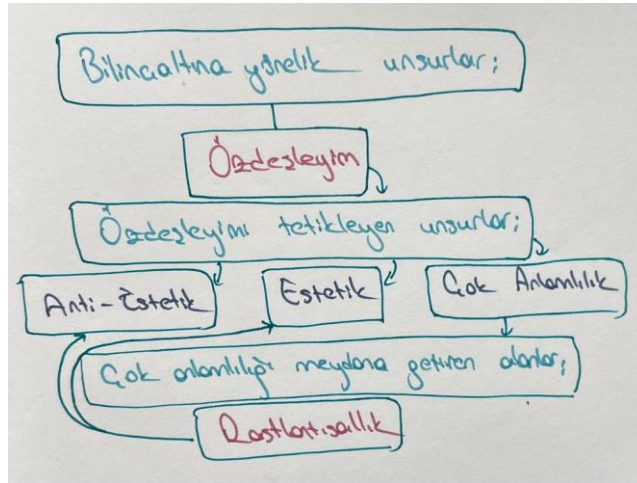 Bilinçaltına yönelik unsurlar;
Özdeşleyim
Özdeşleyimi tetikleyen unsurlar;
Anti-Estetik Estetik Çok Anlamlılık
Çok anlamlılığı meydana getiren alanlar;
Rastlantısallık